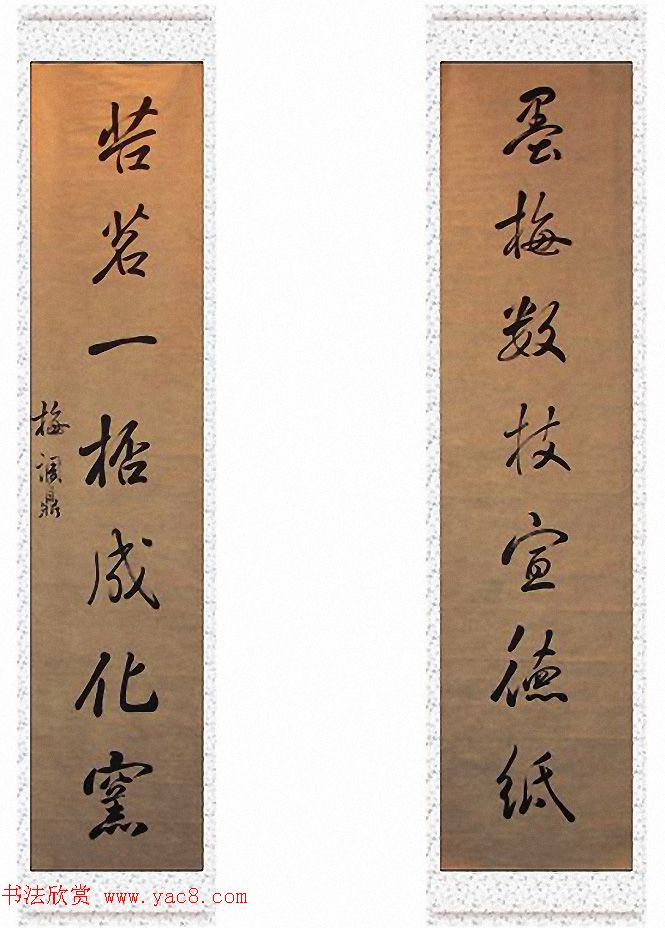 墨梅数枝宣德紙
苦茗一桮成化窯
梅調鼎
书法欣赏 www.yac8.com